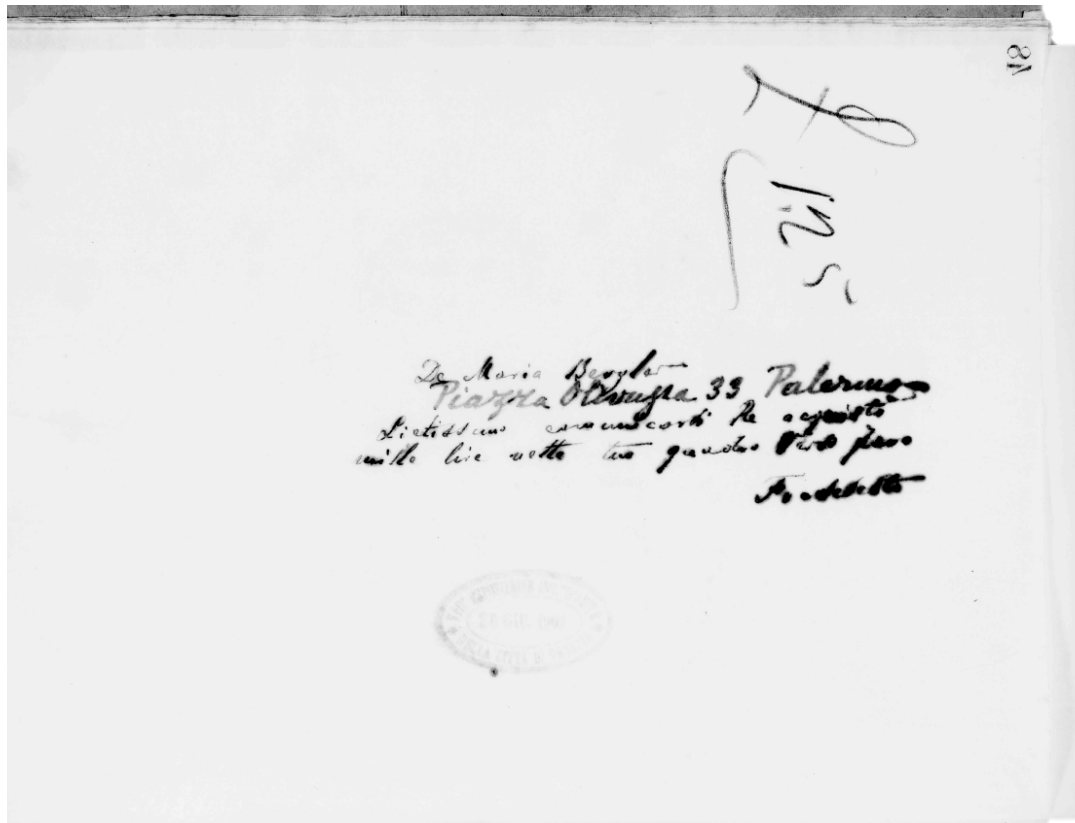 81
£
1.25
De Maria Bergler
Piazza Olivuzza 33 Palermo
Lietissimo comunicarti Re acquistò
mille lire nette tuo quadro
Fradeletto